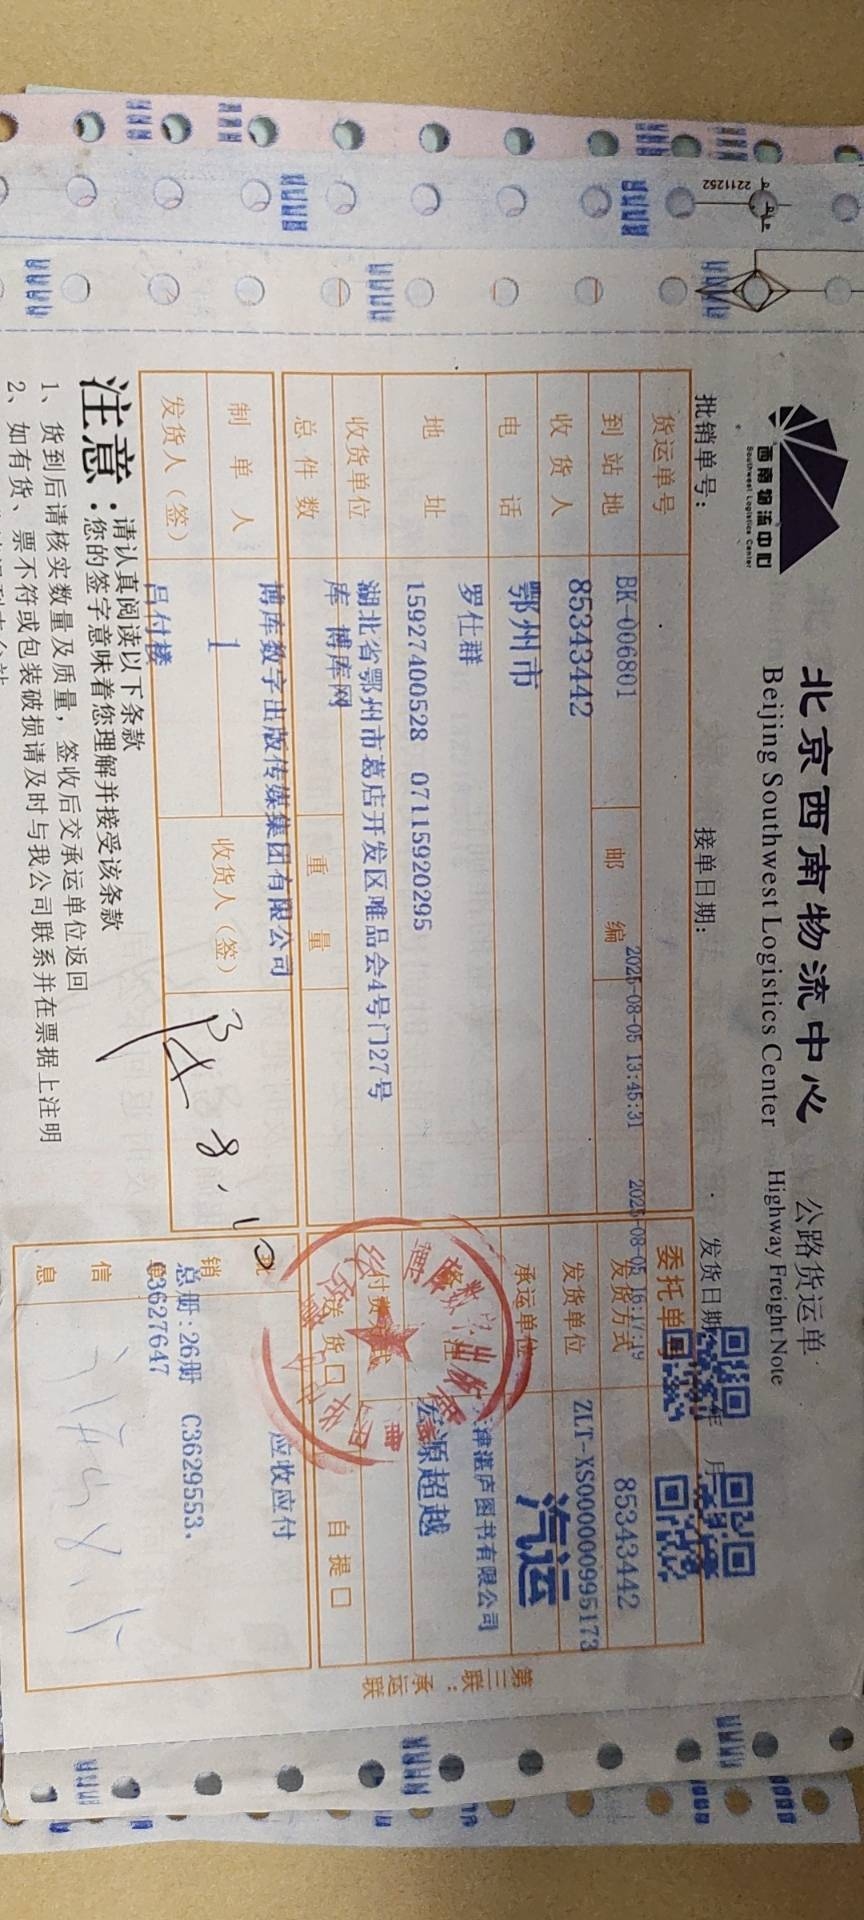 西南物流中心
Southwest Logistics Center
北京西南物流中心 公路货运单
Beijing Southwest Logistics Center Highway Freight Note
批销单号: 接单日期: 发货日期: 年 月
2025-08-05 13:45:31 2025-08-05 16:17:19
货运单号 委托单
BK-006801
到站地 邮 编 发货方式 85343442
85343442
收货人 发货单位 ZLT-XS000000995173
鄂州市
汽运
电 话 承运单位
罗仕群 津湛庐图书有限公司
地 址 注
15927400528 07115920295 宏源超越
湖北省鄂州市葛店开发区唯品会4号门27号
收货单位 付费方式
库 博库网
总 件 数 重 量 送 货口 自 提口
博库数字出版传媒集团有限公司 应收应付
制 单 人 1 收货人(签)
8.10
发货人(签) 吕付楼
销
总册:26册 C3629553、
C3627647
信
息
注意:
请认真阅读以下条款
您的签字意味着您理解并接受该条款
1、货到后请核实数量及质量，签收后交承运单位返回
2、如有货、票不符或包装破损请及时与我公司联系并在票据上注明
第三联：承运联
2211252